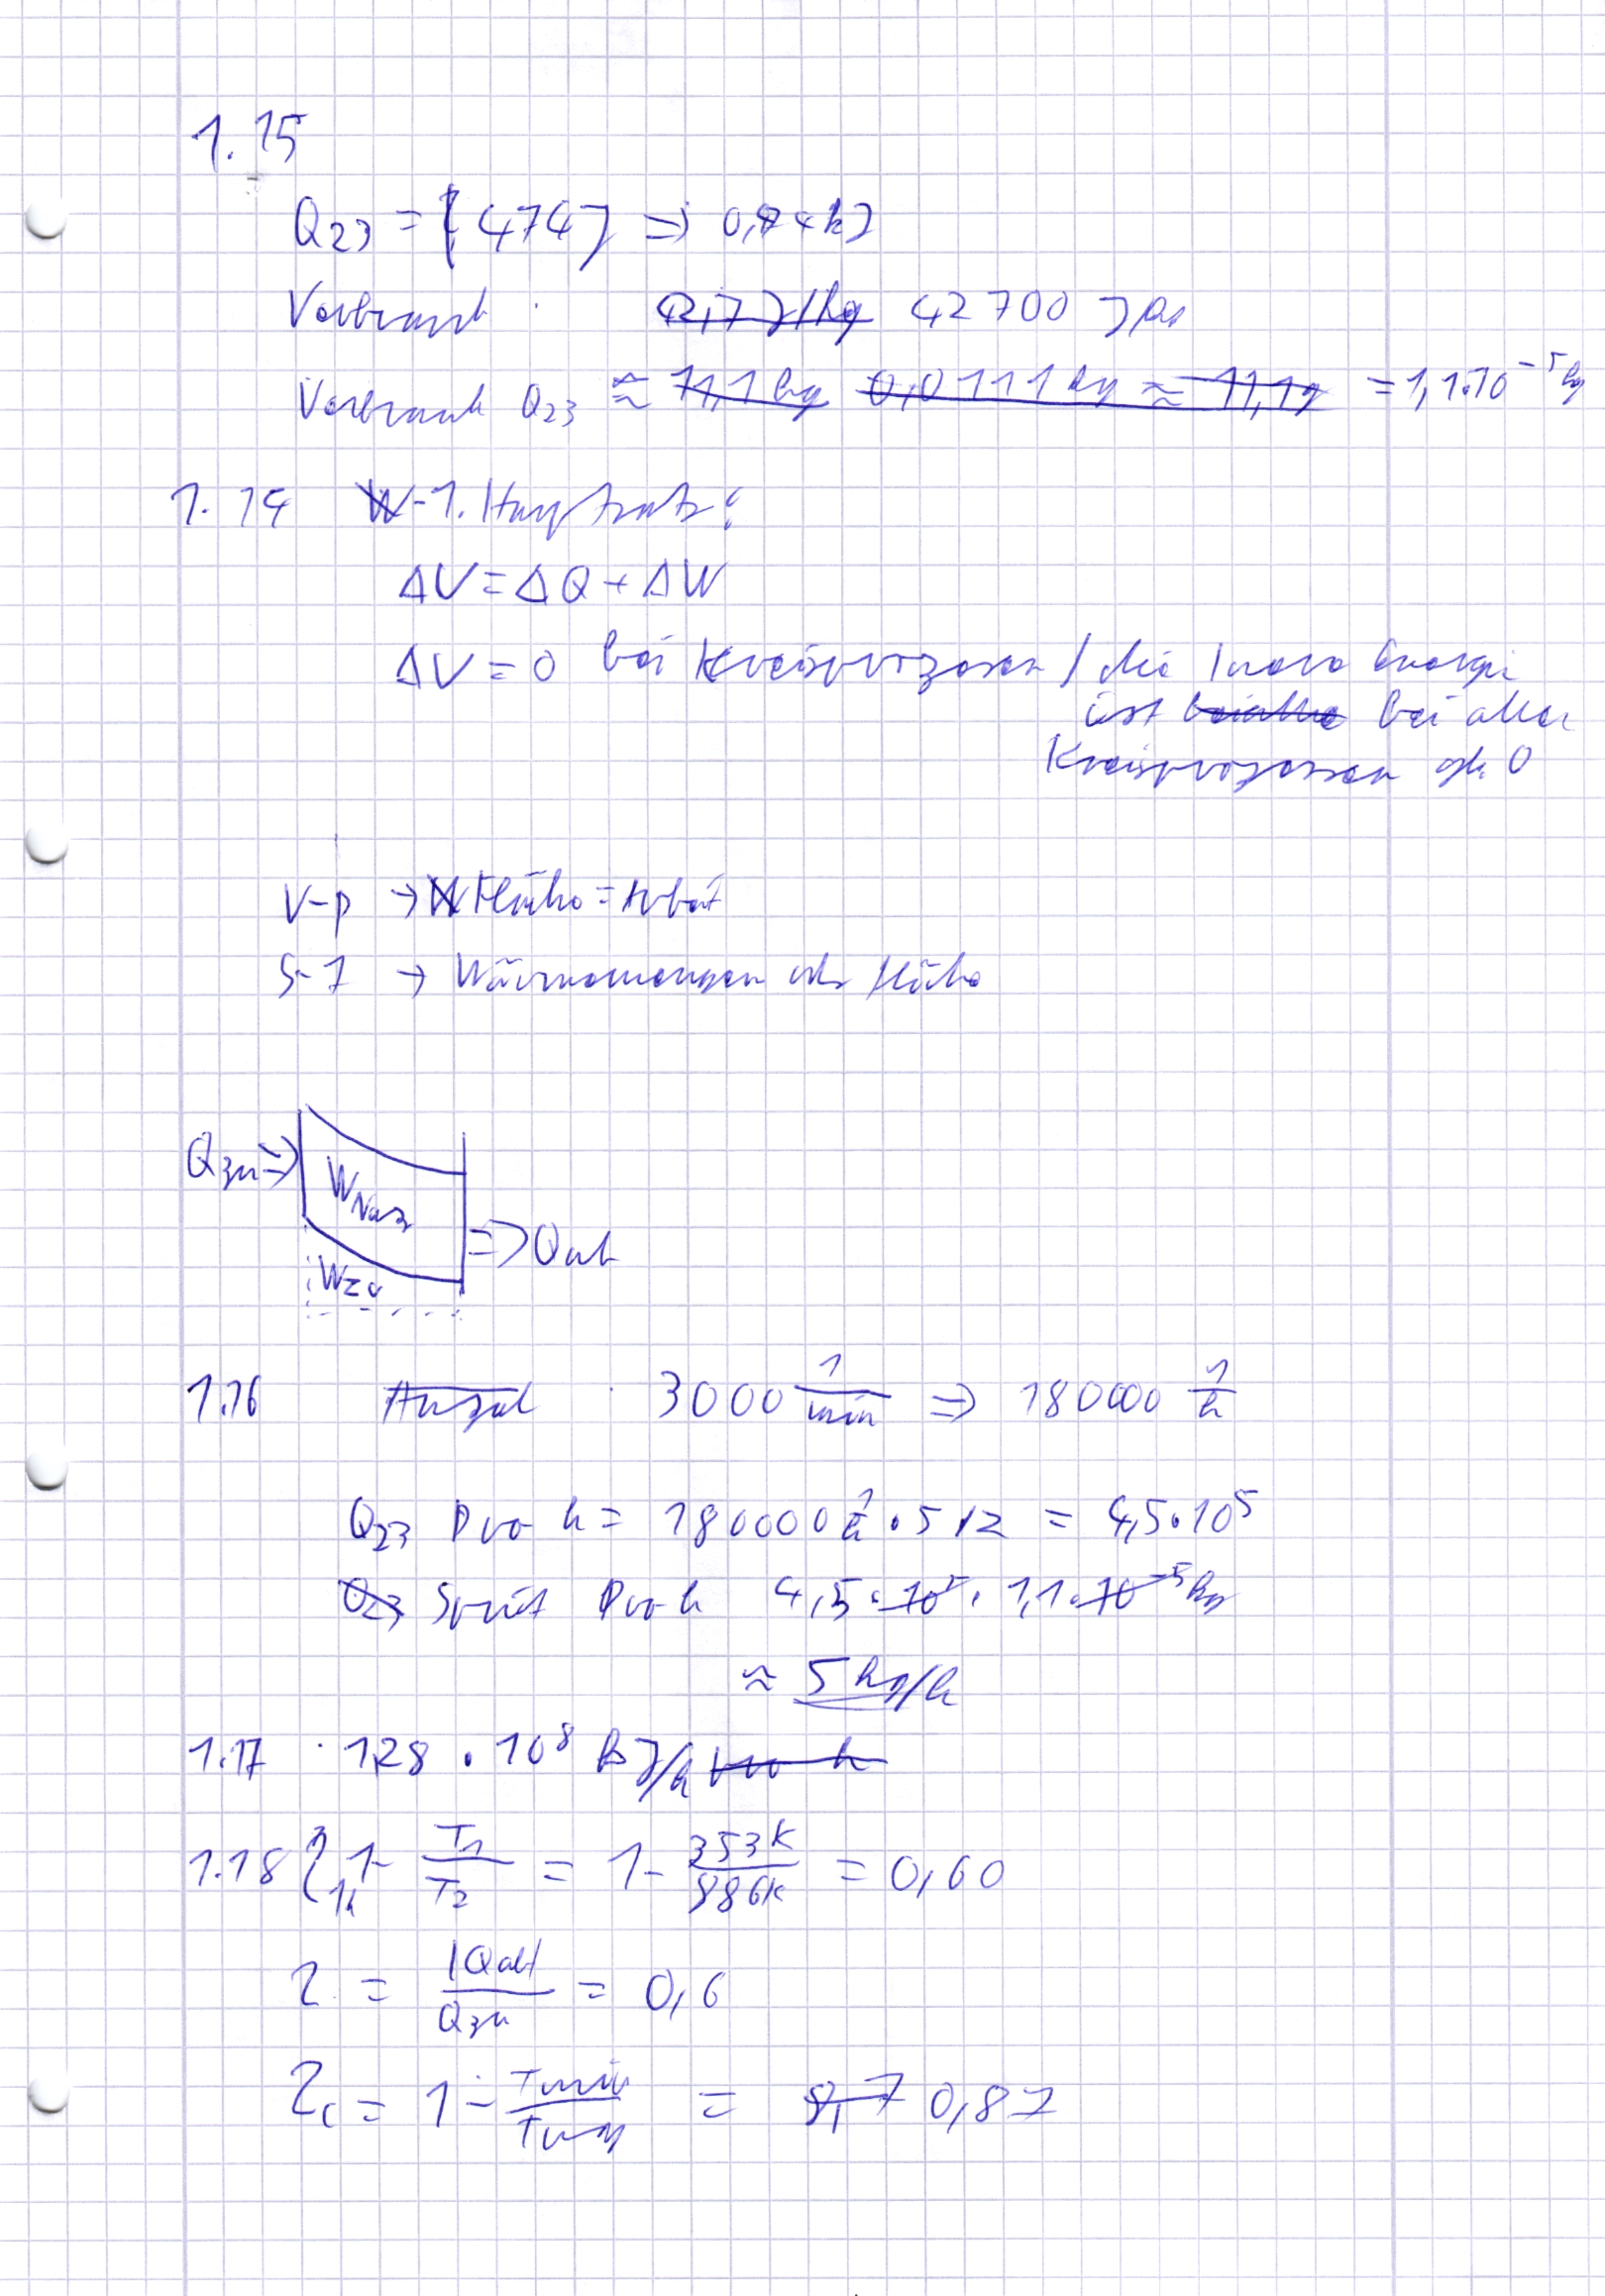 1.15
Q23 = 474J => 0,474 kJ
Verbrauch : 42,7 J/kg 42700 J/kg
Verbrauch Q23 ≈ 11,1 kg 0,0111 kg ≈ 11,1g = 1,1·10⁻⁵ kg
1.14 1. Hauptsatz:
ΔU = ΔQ + ΔW
ΔU = 0 bei Kreisprozessen / die Innere Energie
ist bei allen
Kreisprozessen 0
V-p → Fläche = Arbeit
S-T → Wärmemengen Fläche
Qzu =>
WNutz
=> Qab
Wzu
1.16 Anzahl · 3000 1/min => 180000 1/h
Q23 Pro h = 180000 1/h · 5/2 = 4,5·10⁵
Q23 Sprit Pro h 4,5·10⁵ · 1,1·10⁻⁵ kg
≈ 5 kg/h
1.17 · 1,28 · 10⁸ kJ/h pro h
1.18 ηth 1- T1/T2 = 1 - 353K/886K = 0,60
η = |Qab|/Qzu = 0,6
ηc = 1 - Tmin/Tmax = 8,7 0,87